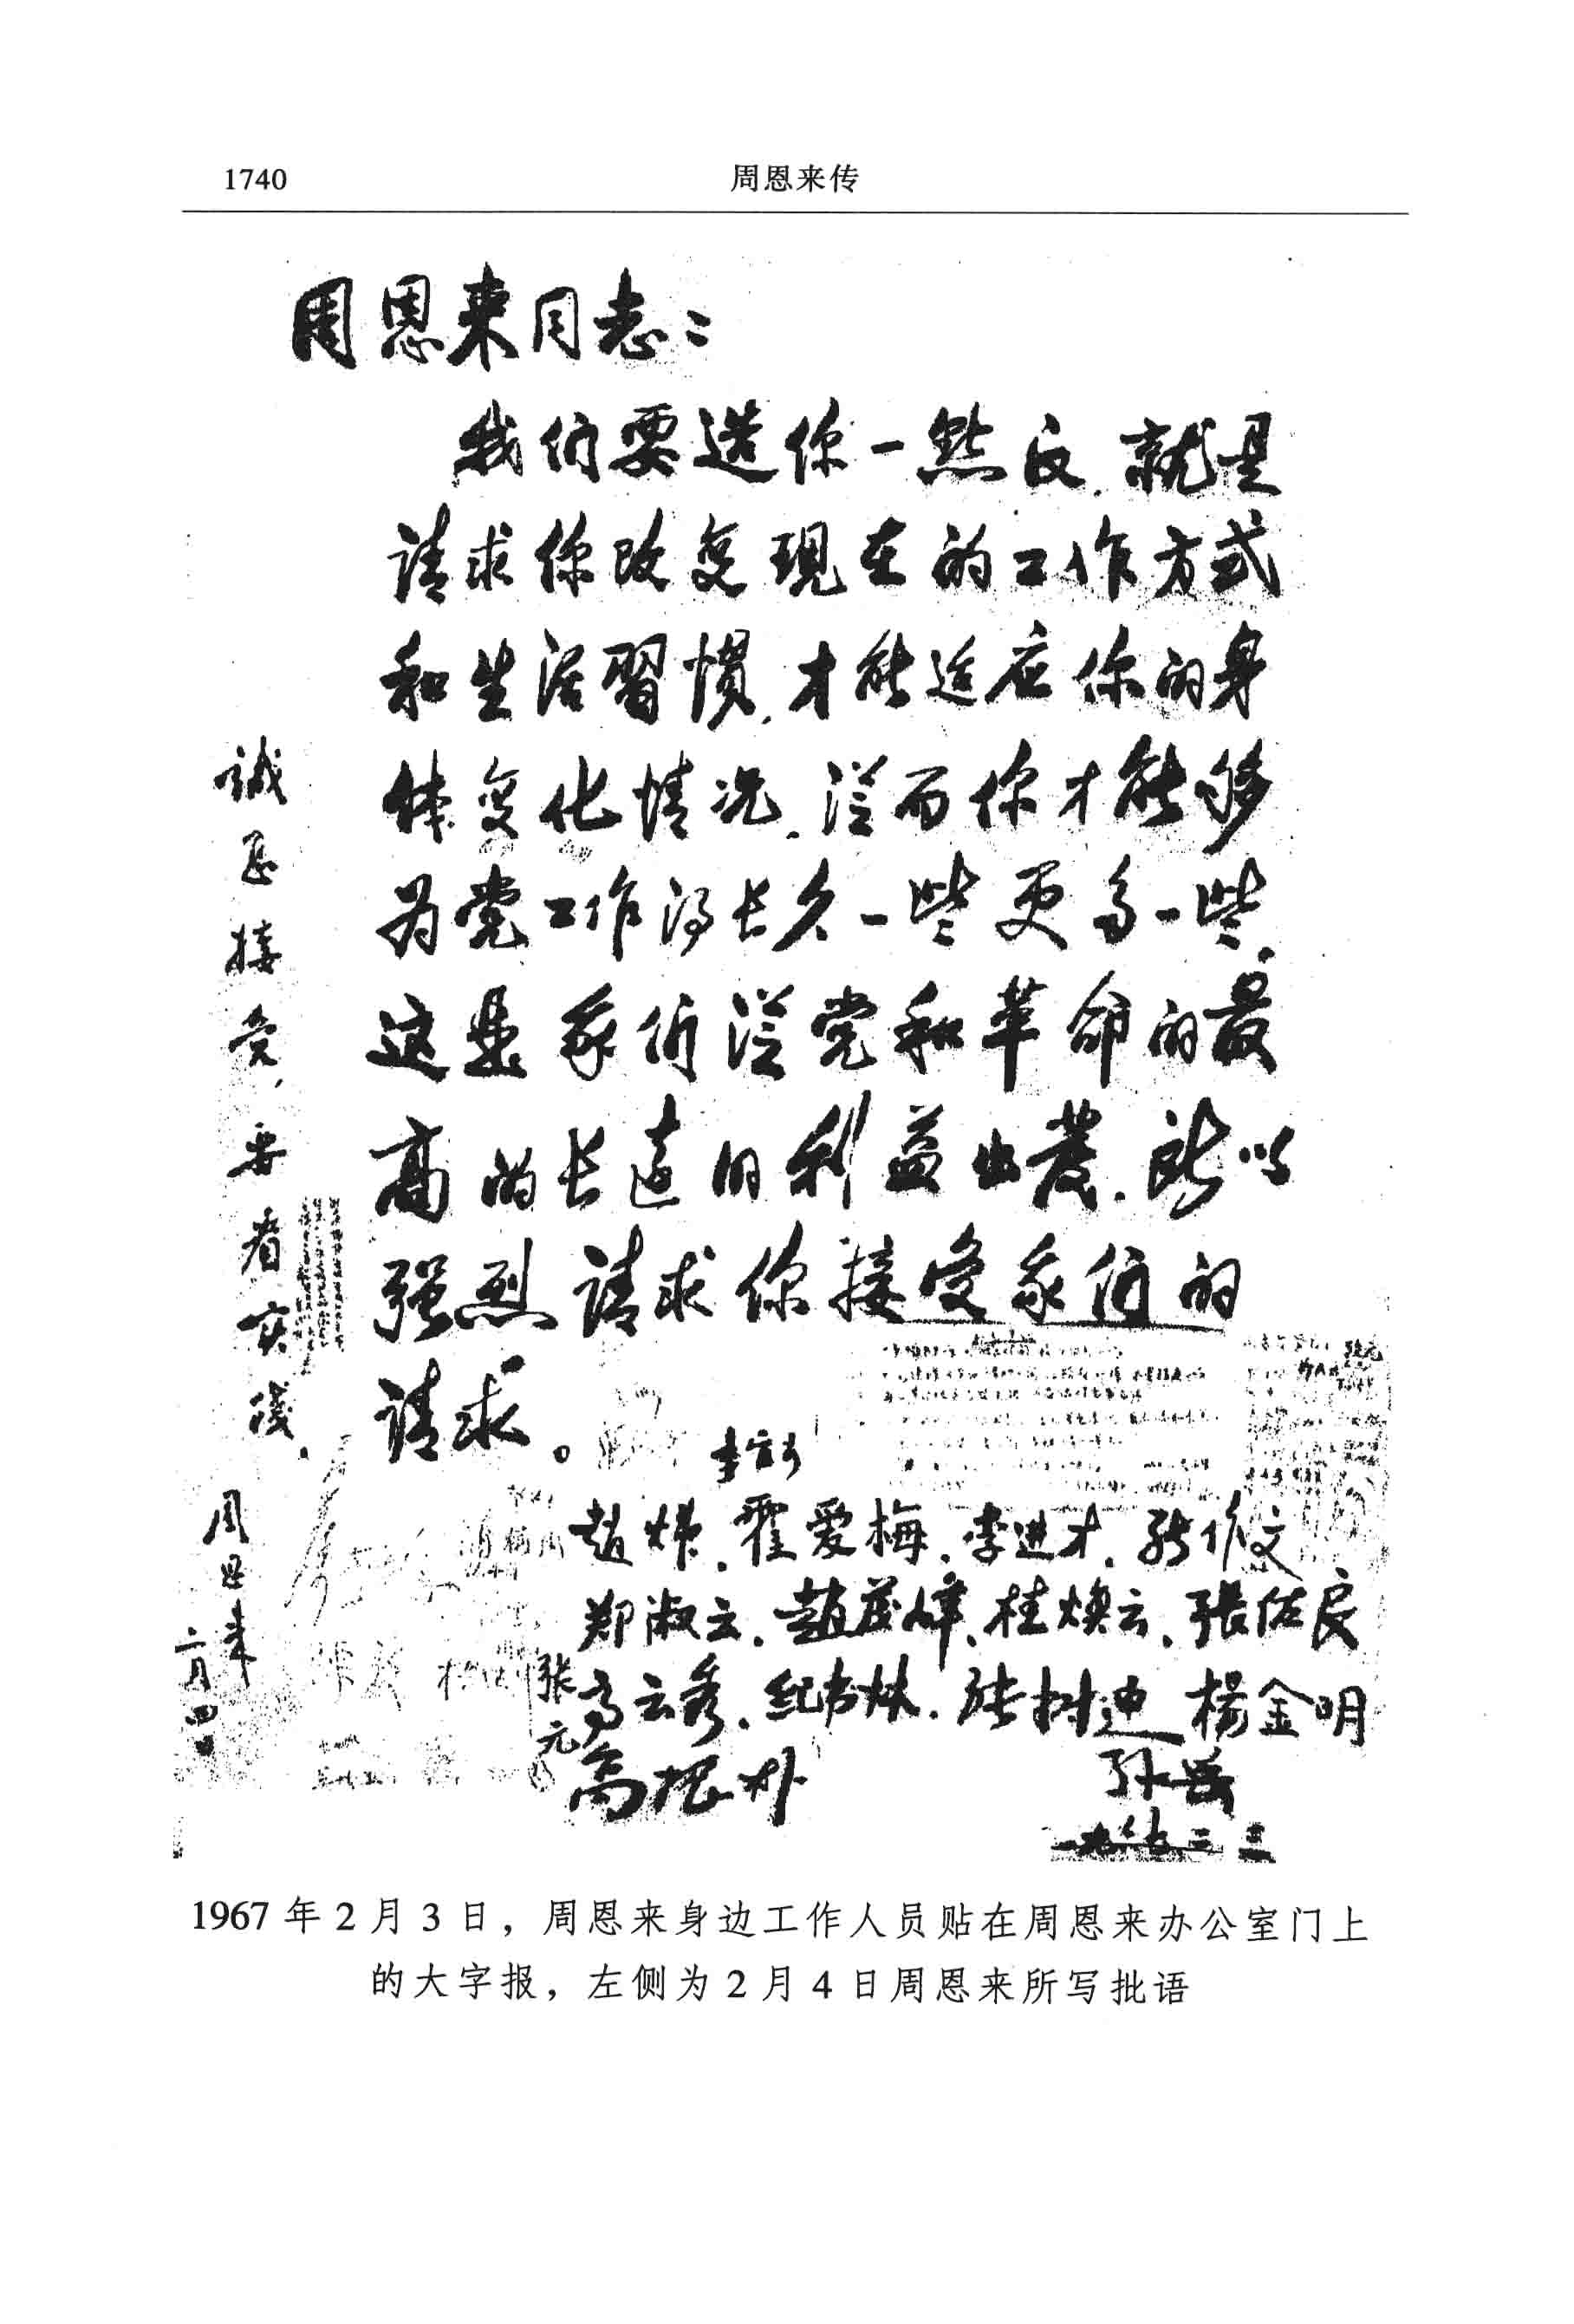 1740
周恩来传
周恩来同志：
我们要造你一点反，就是
请求你改变现在的工作方式
和生活習惯，才能适应你的身
体变化情况，从而你才能够
为党工作得长久一些更多一些，
这是我们从党和革命的最
高的长远的利益出发，所以
强烈请求你接受我们的
请求。
赵炜、霍爱梅、李进才、张作文
郑淑云、赵茂峰、桂焕云、張佐良
张元
高云秀、纪书林、张树迎 楊金明
高振朴
孙岳
一九六七、二、三
诚恳接受，要看实践。
周恩来
二月四日
1967年2月3日，周恩来身边工作人员贴在周恩来办公室门上
的大字报，左侧为2月4日周恩来所写批语